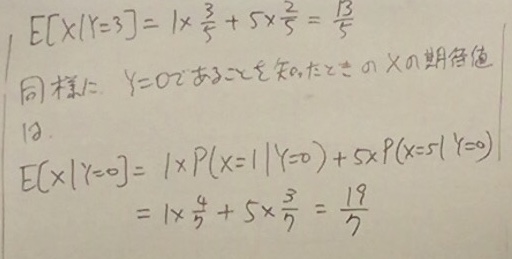 E[X|Y=3] = 1×3/5 + 5×2/5 = 13/5
同様に Y=0であることを知ったときのXの期待値
は
E[X|Y=0] = 1×P(X=1|Y=0) + 5×P(X=5|Y=0)
= 1×4/7 + 5×3/7 = 19/7